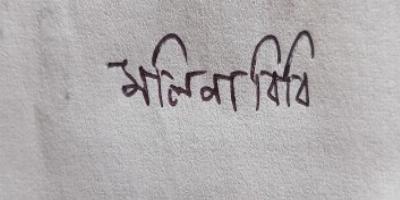 মলিনা বিবি